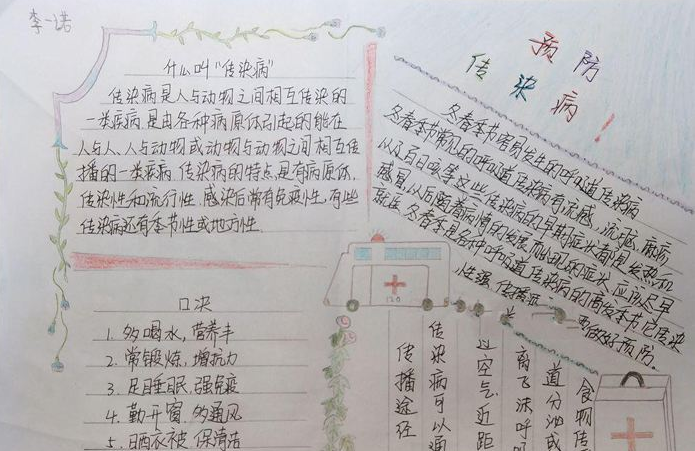 李一诺
预防
传染病！
什么叫“传染病”
传染病是人与动物之间相互传染的
一类疾病,是由各种病原体引起的能在
人与人、人与动物或动物与动物之间相互传
播的一类疾病 传染病的特点是有病原体,
传染性和流行性 感染后常有免疫性,有些
传染病还有季节性或地方性.
冬春季节容易发生的呼吸道传染病
冬春季节常见的呼吸道传染病有流感,流脑,麻疹,
以及百日咳等这些传染病的早期症状都是发热和
感冒,以后随着病情的发展而出现 症状 应该尽早
就医.冬春季是各种呼吸道传染病的高发季节它传染
性强,传播 要做好预防.
120
口决
1. 多喝水,营养丰
2. 常锻炼,增抗力
3. 足睡眠,强免疫
4. 勤开窗,多通风
5. 晒衣被,保清洁
传播途径
传染病可以通
过空气,近距
离飞沫呼吸
道分泌或
食物传